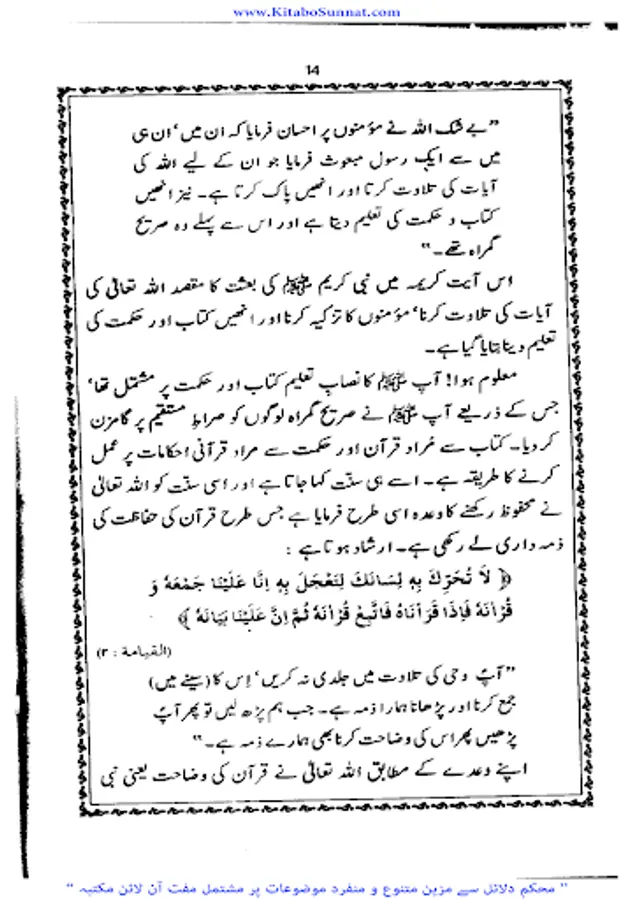 www.KitaboSunnat.com
14
”بے شک اللہ نے مؤمنوں پر احسان فرمایا کہ ان میں‘ ان ہی
میں سے ایک رسول مبعوث فرمایا جو ان کے لیے اللہ کی
آیات کی تلاوت کرتا اور انھیں پاک کرتا ہے۔ نیز انھیں
کتاب و حکمت کی تعلیم دیتا ہے اور اس سے پہلے وہ صریح
گمراہ تھے۔“
اس آیت کریمہ میں نبی کریم ﷺ کی بعثت کا مقصد اللہ تعالیٰ کی
آیات کی تلاوت کرنا‘ مؤمنوں کا تزکیہ کرنا اور انھیں کتاب اور حکمت کی
تعلیم دینا بتایا گیا ہے۔
معلوم ہوا! آپ ﷺ کا نصاب تعلیم کتاب اور حکمت پر مشتمل تھا‘
جس کے ذریعے آپ ﷺ نے صریح گمراہ لوگوں کو صراط مستقیم پر گامزن
کر دیا۔ کتاب سے مُراد قرآن اور حکمت سے مراد قرآنی احکامات پر عمل
کرنے کا طریقہ ہے۔ اسے ہی سنّت کہا جاتا ہے اور اسی سنّت کو اللہ تعالیٰ
نے محفوظ رکھنے کا وعدہ اسی طرح فرمایا ہے جس طرح قرآن کی حفاظت کی
ذمہ داری لے رکھی ہے۔ ارشاد ہوتا ہے :
﴿ لاَ تُحَرِّكْ بِهِ لِسَانَكَ لِتَعْجَلَ بِهِ إِنَّا عَلَيْنَا جَمْعَهُ وَ
قُرْآنَهُ فَإِذَا قَرَأْنَاهُ فَاتَّبِعْ قُرْآنَهُ ثُمَّ إِنَّ عَلَيْنَا بَيَانَهُ ﴾
(القيامة : ۳)
”آپؐ وحی کی تلاوت میں جلدی نہ کریں‘ اِس کا (سینے میں)
جمع کرنا اور پڑھانا ہمارا ذمہ ہے۔ جب ہم پڑھ لیں تو پھر آپؐ
پڑھیں پھر اس کی وضاحت کرنا بھی ہمارے ذمہ ہے۔“
اپنے وعدے کے مطابق اللہ تعالیٰ نے قرآن کی وضاحت یعنی نبی
" محکم دلائل سے مزین متنوع و منفرد موضوعات پر مشتمل مفت آن لائن مکتبہ "